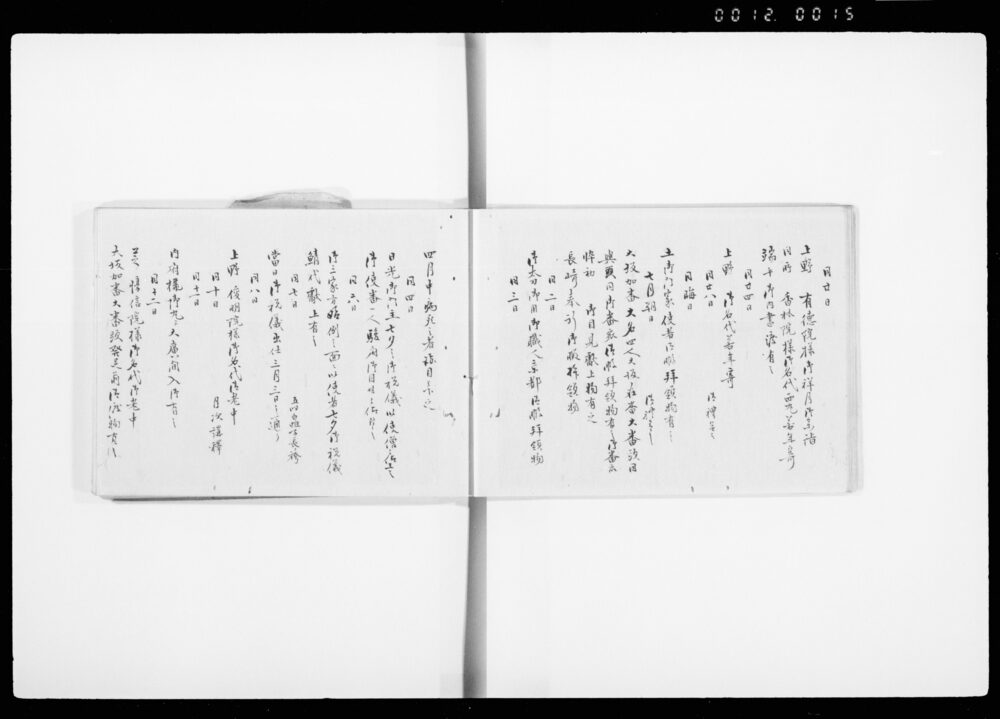 0012. 0015
同廿日
上野 有徳院様御祥月御参詣
同所 香林院様御名代西丸若年寄
端午御内書渡有之
同廿四日
上野 御名代若年寄
同廿八日
同晦日
立御門家使者御暇拝領物有之
七月朔日
大坂加番大名四人大坂在番大番頭同
與頭同御番衆御暇拝領物有之御番衆
悴初 御目見献上物有之
長崎奉行御暇拝領物
同二日
御太刀御用御職人京都御暇拝領物
同三日
四月中病死之者跡目
同四日
日光御門主七夕之御祝儀以使僧
御使番一人駿府御目付
同六日
御三家方始例之面々以使者七夕御祝儀
鯖代献上有之
同七日
長袴
當日御祝儀出仕三月三日之通り
同八日
上野 俊明院様御名代御老中
同十日 月次講釋
同十一日
内府様御九々大廣間入御有之
同十二日
芝 惇信院様御名代御老中
大坂加番大番頭發足前御沙汰物有之